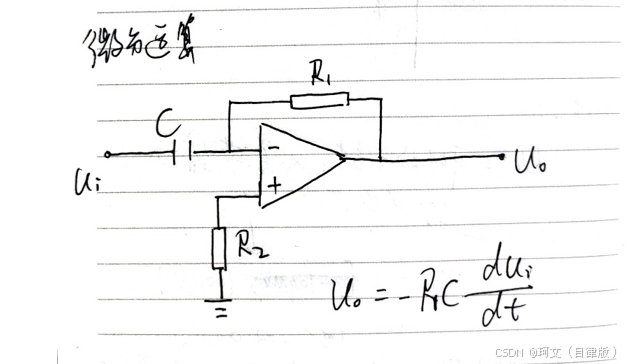 微分运算
R₁
C
-
uᵢ
u₀
+
R₂
u₀ = -R₁C duᵢ/dt
CSDN @珂文（自律版）